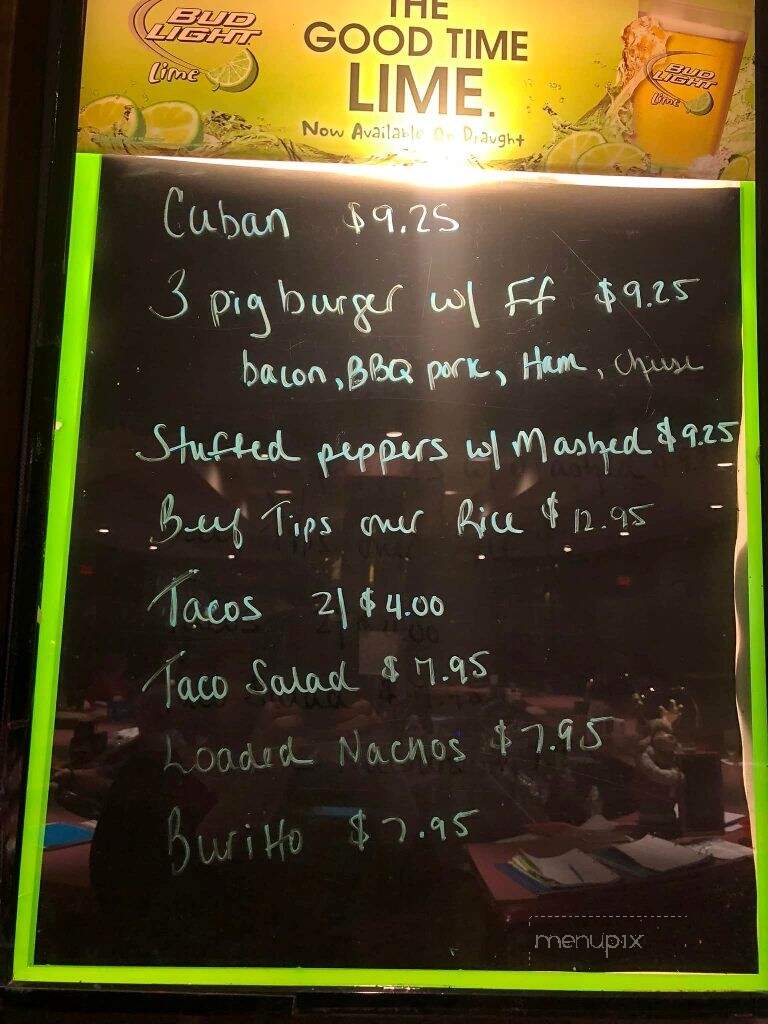 BUD
LIGHT
Lime
THE
GOOD TIME
LIME.
Now Available On Draught
BUD
LIGHT
Lime
Cuban $9.25
3 pig burger w/ Ff $9.25
bacon, BBQ pork, Ham, Cheese
Stuffed peppers w/ Mashed $9.25
Beef Tips over Rice $12.95
Tacos 2/$4.00
Taco Salad $7.95
Loaded Nachos $7.95
Buritto $7.95
menupix